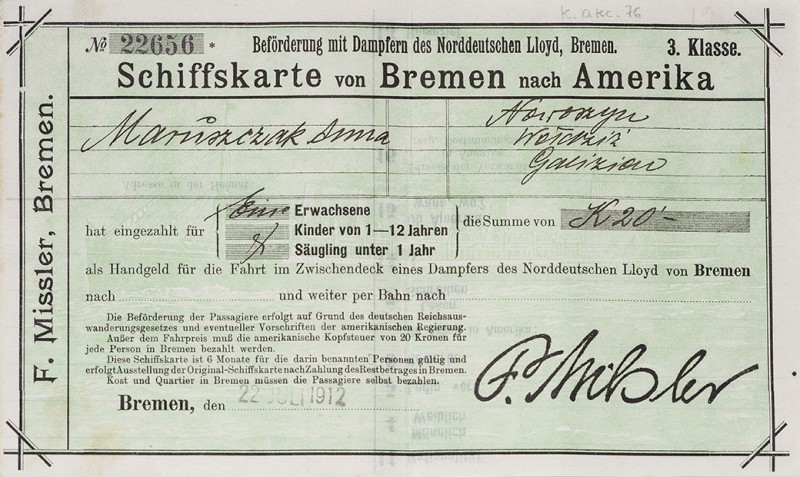 K. akc. 76
№ 22656 * Beförderung mit Dampfern des Norddeutschen Lloyd, Bremen. 3. Klasse.
Schiffskarte von Bremen nach Amerika
F. Missler, Bremen.
Maruszczak Anna
Nowoszyn
Galizien
hat eingezahlt für
eine Erwachsene
Kinder von 1—12 Jahren
Säugling unter 1 Jahr
die Summe von K 20.-
als Handgeld für die Fahrt im Zwischendeck eines Dampfers des Norddeutschen Lloyd von Bremen
nach und weiter per Bahn nach
Die Beförderung der Passagiere erfolgt auf Grund des deutschen Reichsaus-
wanderungsgesetzes und eventueller Vorschriften der amerikanischen Regierung.
Außer dem Fahrpreis muß die amerikanische Kopfsteuer von 20 Kronen für
jede Person in Bremen bezahlt werden.
Diese Schiffskarte ist 6 Monate für die darin benannten Personen gültig und
erfolgt Ausstellung der Original-Schiffskarte nach Zahlung des Restbetrages in Bremen.
Kost und Quartier in Bremen müssen die Passagiere selbst bezahlen.
Bremen, den 22 JULI 1912
F. Mißler